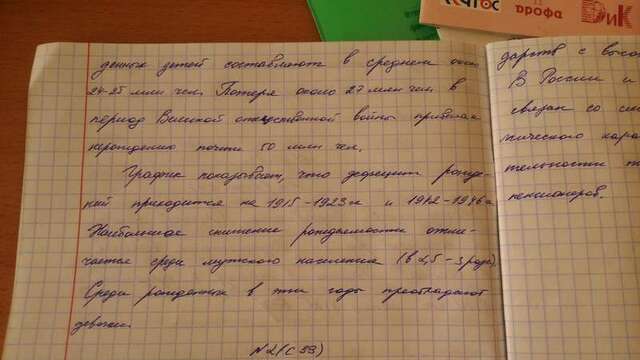 денных детей составляют в среднем около
24-25 млн чел. Потеря около 27 млн чел. в
период Великой отечественной войны привела
нерождению почти 50 млн чел.
График показывает, что дефицит рожде-
ний приходится на 1915-1923 и 1942-1946 г.
Наибольшее снижение рождаемости отме-
чается среди мужского населения (в 2,5-3 раза)
Среди рожденных в эти годы преобладают
девочки.
N2 (с 39)
дарств с высо
В России и
связан со
мического хара
тельности
пенсионеров.
арофа
ДиК